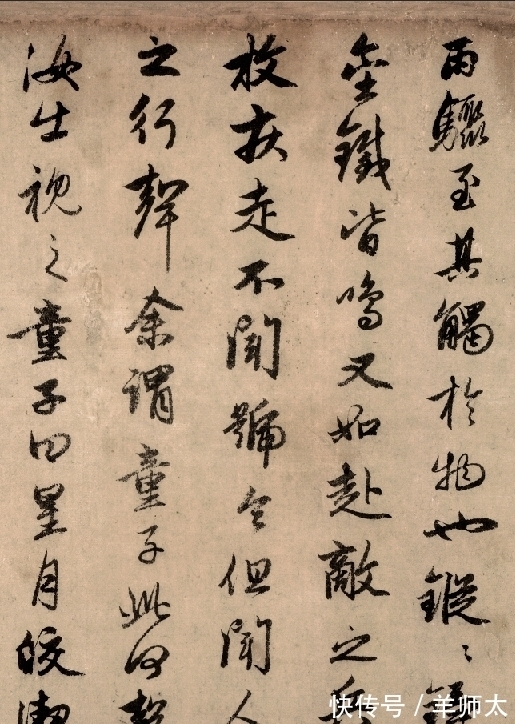 雨驟至其觸於物也鏦〻錚
金鐵皆鳴又如赴敵之兵
枚疾走不聞號令但聞人
之行聲余謂童子此何聲
汝出視之童子曰星月皎潔
快传号／羊师太